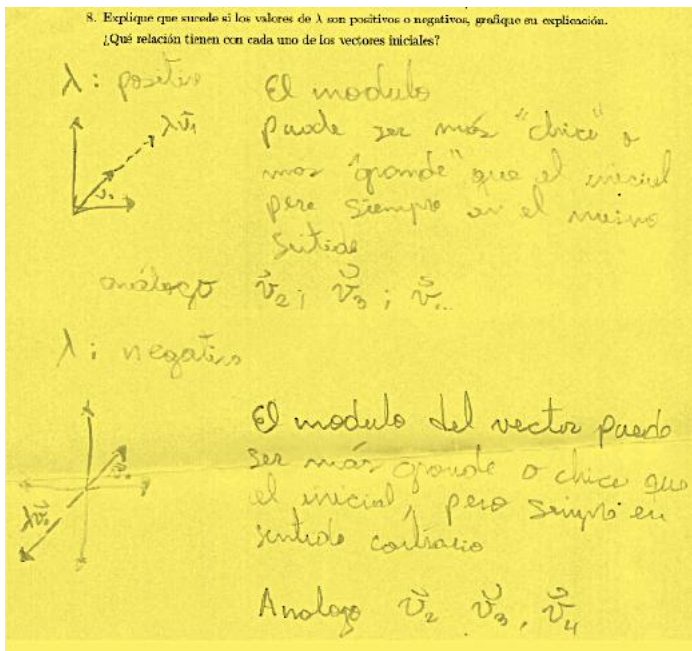 8. Explique que sucede si los valores de λ son positivos o negativos, grafique su explicación.
¿Qué relación tienen con cada uno de los vectores iniciales?
λ : positivo
El modulo
puede ser más "chico" o
mas "grande" que el inicial
pero siempre en el mismo
sentido
λv⃗₁
v⃗₁
análogo v⃗₂ ; v⃗₃ ; v⃗
λ : negativo
El modulo del vector puede
ser más grande o chico que
el inicial, pero siempre en
sentido contrario
Analogo v⃗₂ v⃗₃, v⃗₄